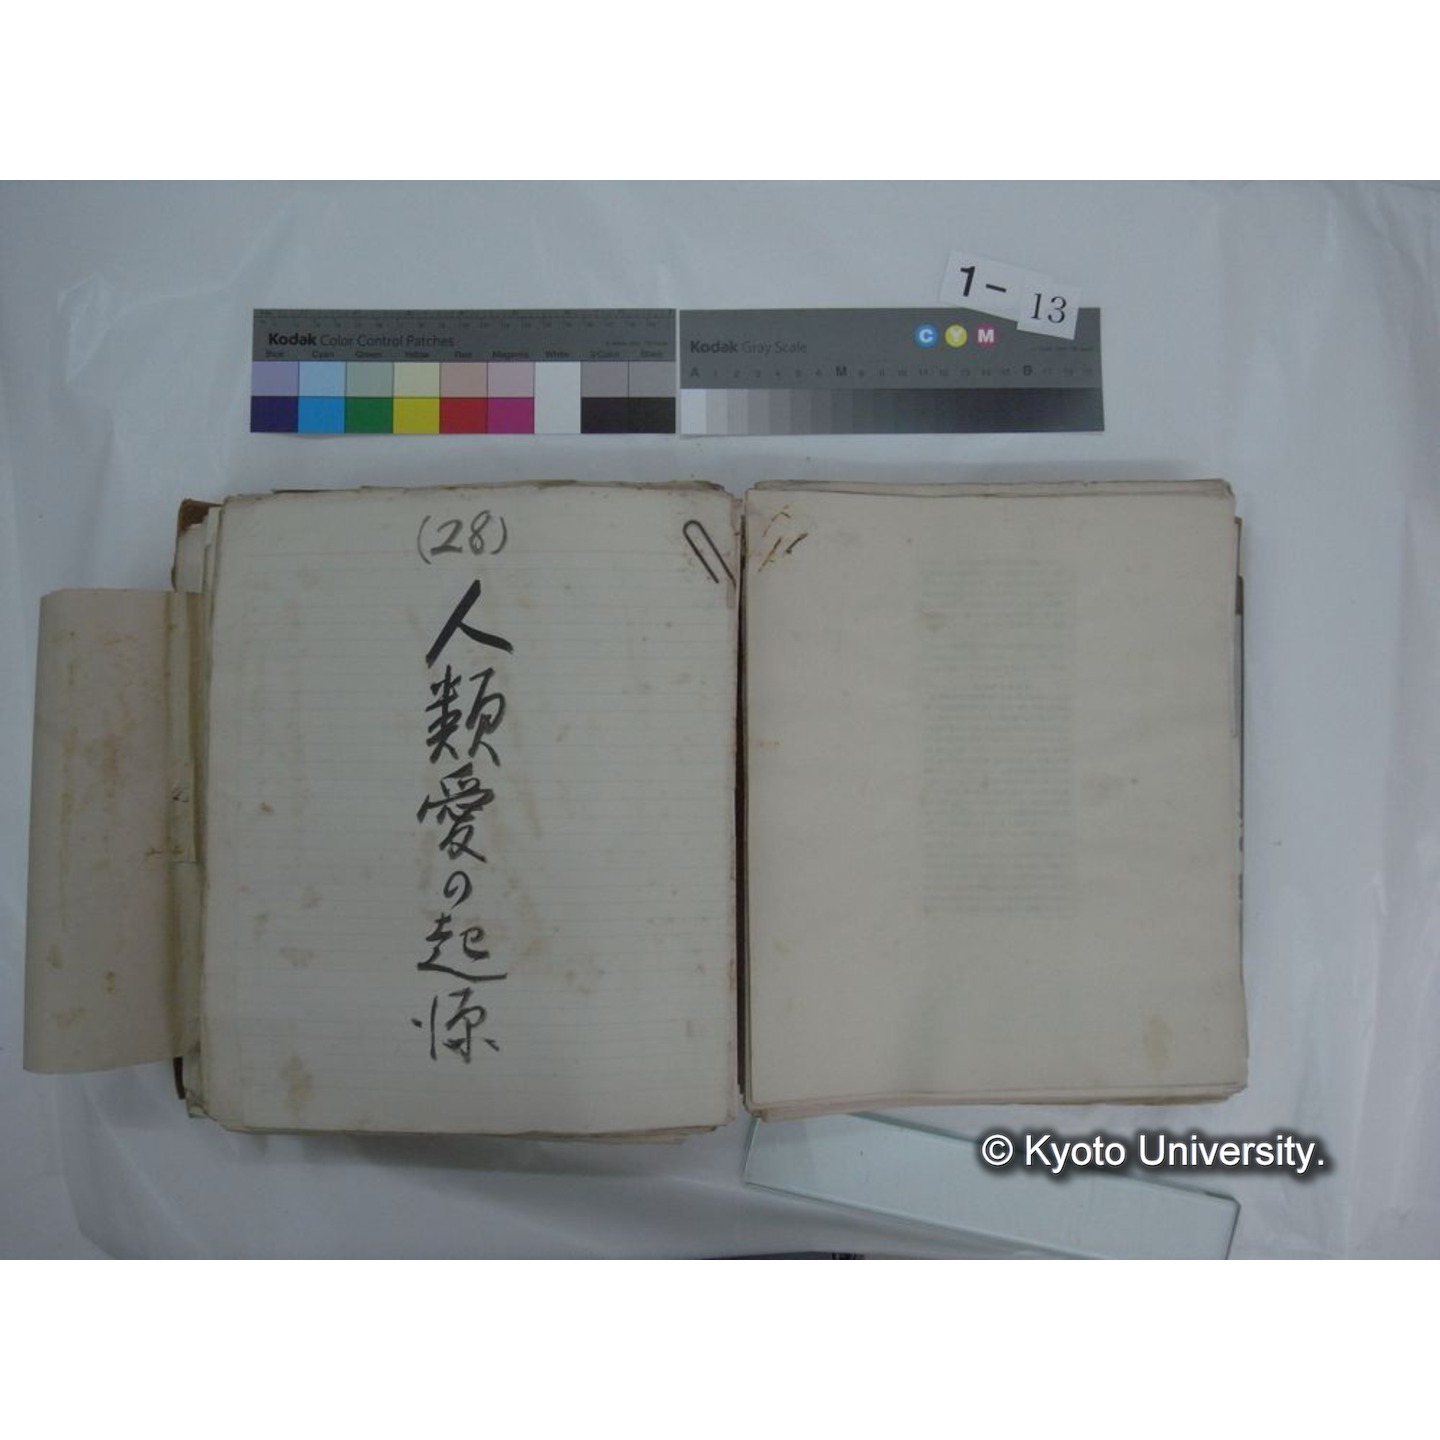 1-13
Kodak Color Control Patches
Blue Cyan Green Yellow Red Magenta White 3/Color Black
Kodak Gray Scale
C Y M
A 1 2 3 4 5 6 M 8 9 10 11 12 13 14 15 B 17 18 19
(28)
人類愛の起源
© Kyoto University.